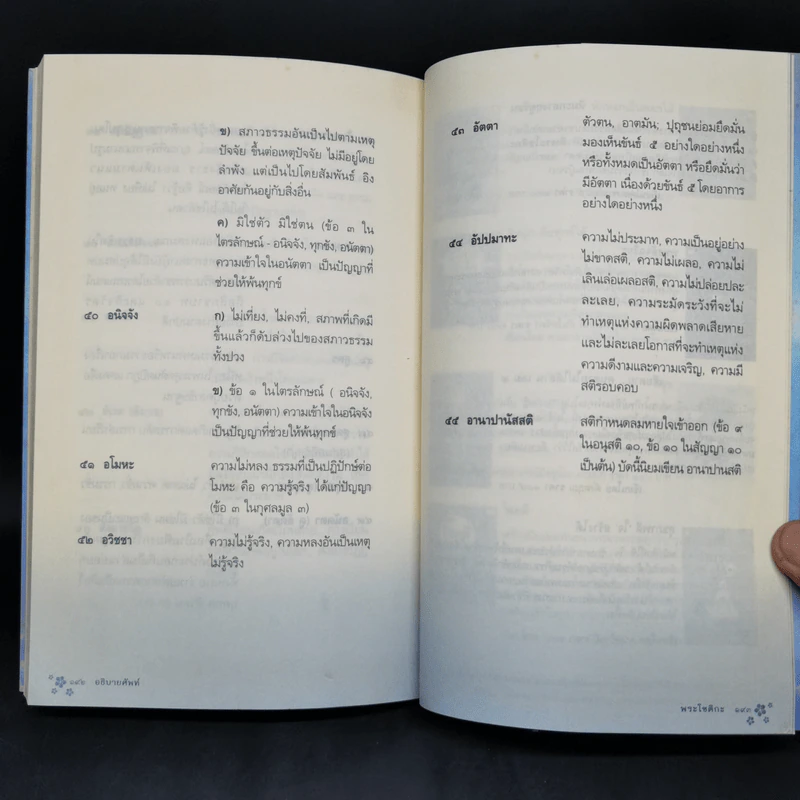 ข) สภาวธรรมอันเป็นไปตามเหตุ
ปัจจัย ขึ้นต่อเหตุปัจจัย ไม่มีอยู่โดย
ลำพัง แต่เป็นไปโดยสัมพันธ์ อิง
อาศัยกันอยู่กับสิ่งอื่น
ค) มิใช่ตัว มิใช่ตน (ข้อ ๓ ใน
ไตรลักษณ์ - อนิจจัง, ทุกขัง, อนัตตา)
ความเข้าใจในอนัตตา เป็นปัญญาที่
ช่วยให้พ้นทุกข์
๕๐ อนิจจัง ก) ไม่เที่ยง, ไม่คงที่, สภาพที่เกิดมี
ขึ้นแล้วก็ดับล่วงไปของสภาวธรรม
ทั้งปวง
ข) ข้อ ๑ ในไตรลักษณ์ ( อนิจจัง,
ทุกขัง, อนัตตา) ความเข้าใจในอนิจจัง
เป็นปัญญาที่ช่วยให้พ้นทุกข์
๕๑ อโมหะ ความไม่หลง ธรรมที่เป็นปฏิปักษ์ต่อ
โมหะ คือ ความรู้จริง ได้แก่ปัญญา
(ข้อ ๓ ในกุศลมูล ๓)
๕๒ อวิชชา ความไม่รู้จริง, ความหลงอันเป็นเหตุ
ไม่รู้จริง
๑๙๒ อธิบายศัพท์
๕๓ อัตตา ตัวตน, อาตมัน; ปุถุชนย่อมยึดมั่น
มองเห็นขันธ์ ๕ อย่างใดอย่างหนึ่ง
หรือทั้งหมดเป็นอัตตา หรือยึดมั่นว่า
มีอัตตา เนื่องด้วยขันธ์ ๕ โดยอาการ
อย่างใดอย่างหนึ่ง
๕๔ อัปปมาทะ ความไม่ประมาท, ความเป็นอยู่อย่าง
ไม่ขาดสติ, ความไม่เผลอ, ความไม่
เลินเล่อเผลอสติ, ความไม่ปล่อยปละ
ละเลย, ความระมัดระวังที่จะไม่
ทำเหตุแห่งความผิดพลาดเสียหาย
และไม่ละเลยโอกาสที่จะทำเหตุแห่ง
ความดีงามและความเจริญ, ความมี
สติรอบคอบ
๕๕ อานาปานัสสติ สติกำหนดลมหายใจเข้าออก (ข้อ ๙
ในอนุสติ ๑๐, ข้อ ๑๐ ในสัญญา ๑๐
เป็นต้น) บัดนี้นิยมเขียน อานาปานสติ
พระโชติกะ ๑๙๓